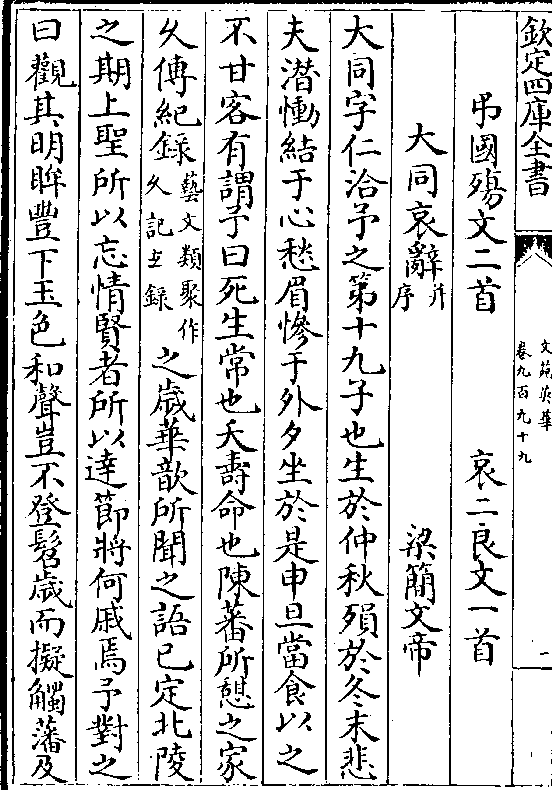 欽定四庫全書
文苑英華
卷九百九十九
二
弔國殤文二首 哀二良文一首
大同哀辭并序 梁簡文帝
大同字仁洽予之第十九子也生於仲秋殞於冬末悲
夫潜慟結于心愁眉慘于外夕坐於是申旦當食以之
不甘客有謂予曰死生常也夭壽命也陳蕃所憇之家
久傳紀錄藝文類聚作久記主錄之歳華歆所聞之語已定北陵
之期上聖所以忘情賢者所以達節將何戚焉予對之
曰觀其明眸豐下玉色和聲豈不登髫歳而擬觸藩及